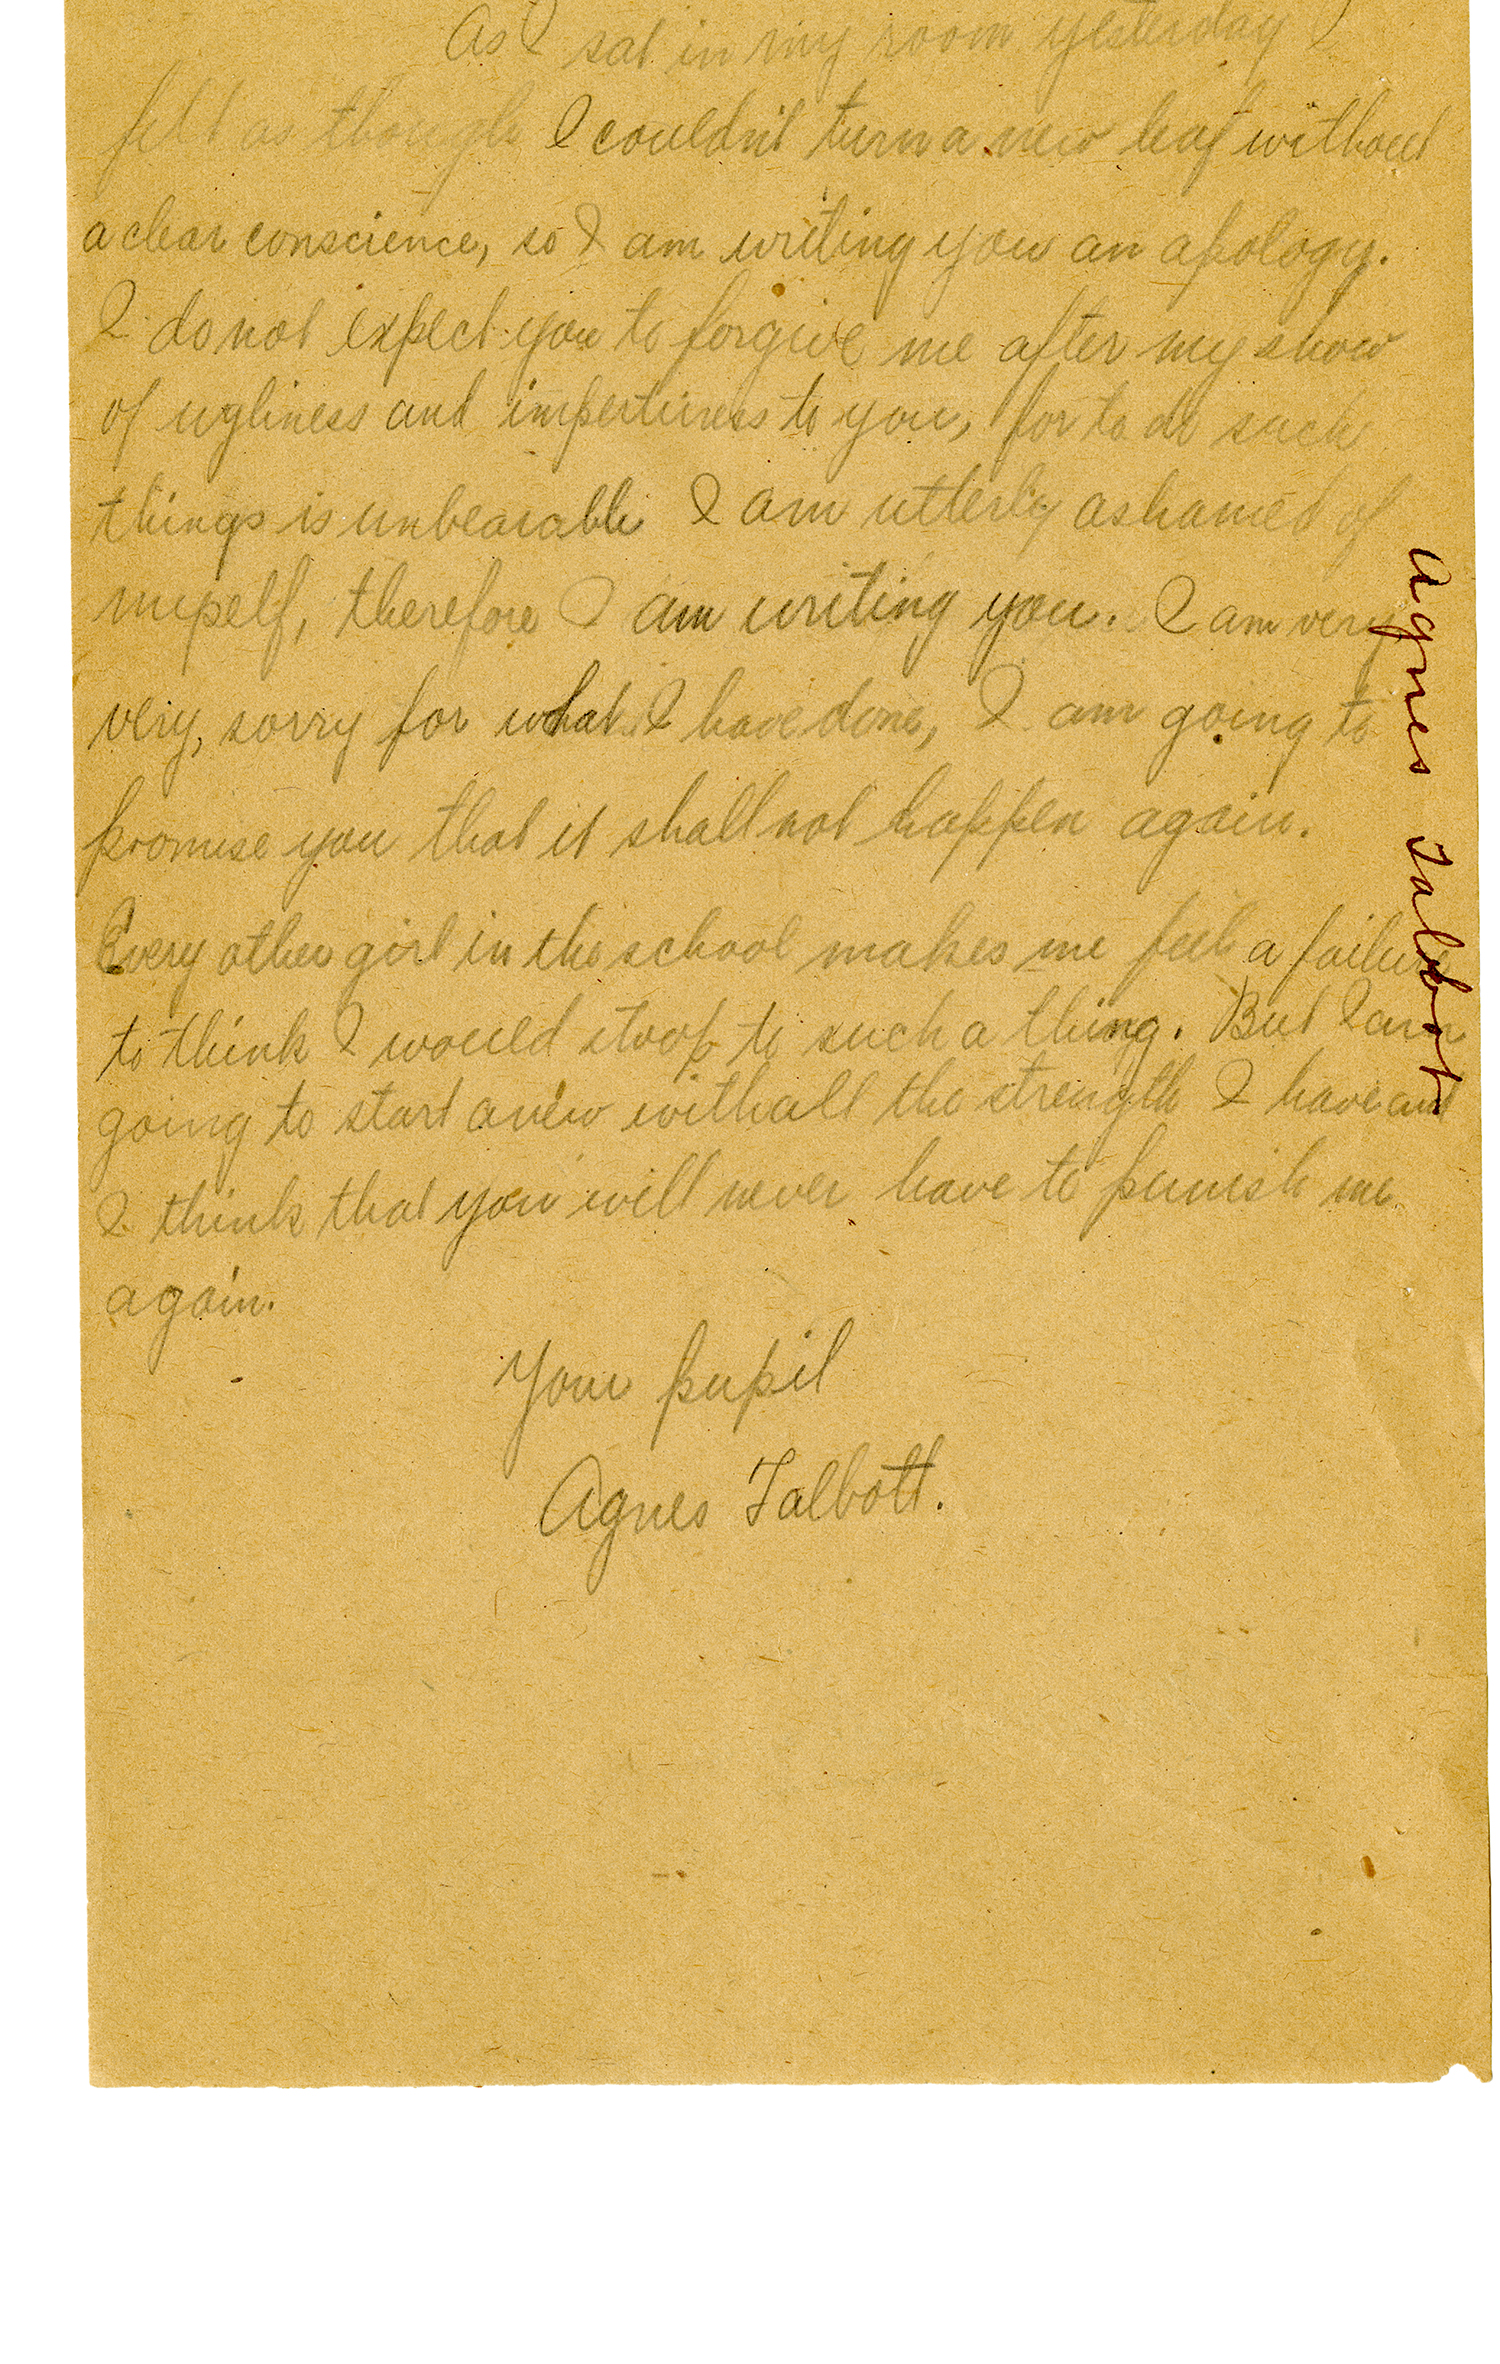 As I sat in my room yesterday I
felt as though I couldn't turn a new leaf without
a clear conscience, so I am writing you an apology.
I do not expect you to forgive me after my show
of ugliness and impertiness to you, for to do such
things is unbearable I am utterly ashamed of
myself, therefore I am writing you. I am very
very, sorry for what I have done, I am going to
promise you that it shall not happen again.
Every other girl in the school makes me feel a failure
to think I would stoop to such a thing. But I am
going to start anew with all the strength I have and
I think that you will never have to punish me
again.
Your pupil
Agnes Talbott.
Agnes Talbot